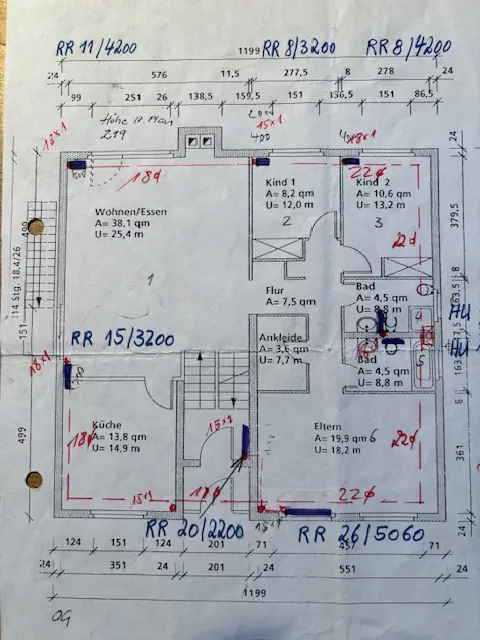 RR 11/4200
RR 8/3200
RR 8/4200
1199
24
576
11,5
277,5
8
278
24
99
251
26
138,5
159,5
151
136,5
151
86,5
Höhe
219
400
15x1
18x1
24
18¢
22¢
Kind 1
A= 8,2 qm
U= 12,0 m
2
Kind 2
A= 10,6 qm
U= 13,2 m
3
379,5
22¢
Wohnen/Essen
A= 38,1 qm
U= 25,4 m
1
490
14 Stg. 18,4/26
151
Flur
A= 7,5 qm
Bad
A= 4,5 qm
U= 8,8 m
4
8
163,5
HU
RR 15/3200
Ankleide
A= 3,6 qm
U= 7,7 m
Bad
A= 4,5 qm
U= 8,8 m
5
HU
6
18x1
499
Küche
A= 13,8 qm
U= 14,9 m
18¢
15x1
Eltern
A= 19,9 qm
U= 18,2 m
6
22¢
361
15x1
18¢
22¢
RR 20/2200
RR 26/5060
24
124
151
124
201
71
457
71
24
351
24
201
24
551
24
1199
OG